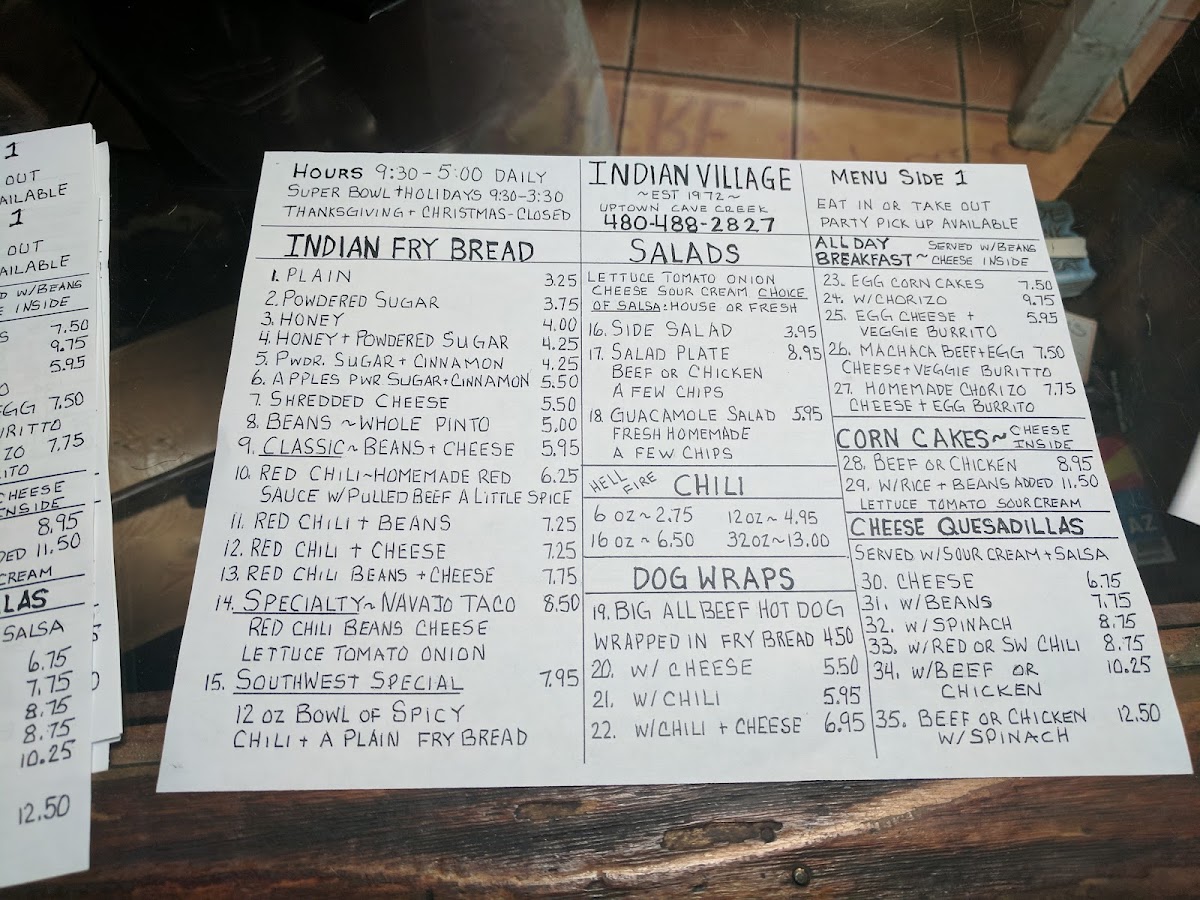 HOURS 9:30-5:00 DAILY
SUPER BOWL + HOLIDAYS 9:30-3:30
THANKSGIVING + CHRISTMAS-CLOSED
INDIAN VILLAGE
~EST 1972~
UPTOWN CAVE CREEK
480-488-2827
MENU SIDE 1
EAT IN OR TAKE OUT
PARTY PICK UP AVAILABLE
INDIAN FRY BREAD
1. PLAIN 3.25
2. POWDERED SUGAR 3.75
3. HONEY 4.00
4. HONEY + POWDERED SUGAR 4.25
5. PWDR. SUGAR + CINNAMON 4.25
6. APPLES PWR SUGAR+CINNAMON 5.50
7. SHREDDED CHEESE 5.50
8. BEANS ~ WHOLE PINTO 5.00
9. CLASSIC ~ BEANS + CHEESE 5.95
10. RED CHILI ~ HOMEMADE RED 6.25
SAUCE W/ PULLED BEEF A LITTLE SPICE
11. RED CHILI + BEANS 7.25
12. RED CHILI + CHEESE 7.25
13. RED CHILI BEANS + CHEESE 7.75
14. SPECIALTY ~ NAVAJO TACO 8.50
RED CHILI BEANS CHEESE
LETTUCE TOMATO ONION
15. SOUTHWEST SPECIAL 7.95
12 OZ BOWL OF SPICY
CHILI + A PLAIN FRY BREAD
SALADS
LETTUCE TOMATO ONION
CHEESE SOUR CREAM CHOICE
OF SALSA: HOUSE OR FRESH
16. SIDE SALAD 3.95
17. SALAD PLATE 8.95
BEEF OR CHICKEN
A FEW CHIPS
18 GUACAMOLE SALAD 5.95
FRESH HOMEMADE
A FEW CHIPS
HELL FIRE CHILI
6 OZ ~ 2.75 12 OZ ~ 4.95
16 OZ ~ 6.50 32 OZ ~ 13.00
DOG WRAPS
19. BIG ALL BEEF HOT DOG
WRAPPED IN FRY BREAD 4.50
20. W/ CHEESE 5.50
21. W/ CHILI 5.95
22. W/CHILI + CHEESE 6.95
ALL DAY BREAKFAST ~ SERVED W/BEANS
CHEESE INSIDE
23. EGG CORN CAKES 7.50
24. W/CHORIZO 9.75
25. EGG CHEESE + 5.95
VEGGIE BURRITO
26. MACHACA BEEF+EGG 7.50
CHEESE+VEGGIE BURITTO
27. HOMEMADE CHORIZO 7.75
CHEESE + EGG BURRITO
CORN CAKES ~ CHEESE INSIDE
28. BEEF OR CHICKEN 8.95
29. W/RICE + BEANS ADDED 11.50
LETTUCE TOMATO SOUR CREAM
CHEESE QUESADILLAS
SERVED W/SOUR CREAM + SALSA
30. CHEESE 6.75
31. W/BEANS 7.75
32. W/SPINACH 8.75
33. W/RED OR SW CHILI 8.75
34. W/BEEF OR 10.25
CHICKEN
35. BEEF OR CHICKEN 12.50
W/SPINACH
1
OUT
AILABLE
1
OUT
AILABLE
D W/BEANS
E INSIDE
7.50
9.75
5.95
EGG 7.50
URITTO
ZO 7.75
ITO
CHEESE
INSIDE
8.95
DED 11.50
CREAM
LAS
SALSA
6.75
7.75
8.75
8.75
10.25
12.50
AZ